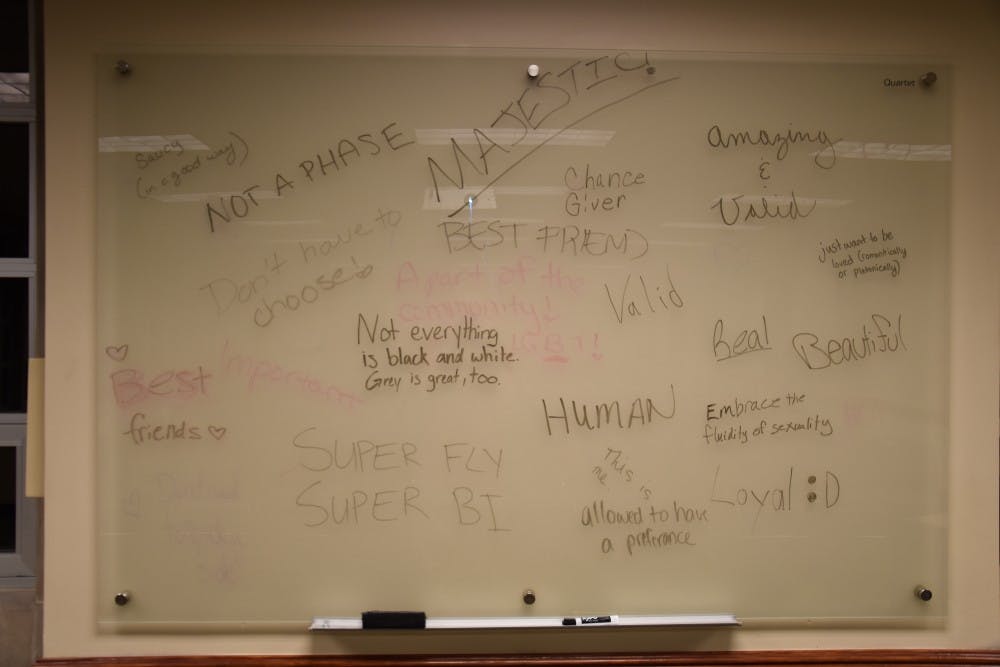 Quartet
MAJESTIC!
saucy
(in a good way)
NOT A PHASE
amazing
&
Valid
Chance
Giver
BEST FRIEND
Don't have to
choose!
just want to be
loved (romantically
or platonically)
A part of the
community!
LGBT!
Valid
Not everything
is black and white.
Grey is great, too.
Real
Beautiful
Best
friends
Important
HUMAN
Embrace the
fluidity of sexuality
SUPER FLY
SUPER BI
This is
me
allowed to have
a preferance
Loyal :D